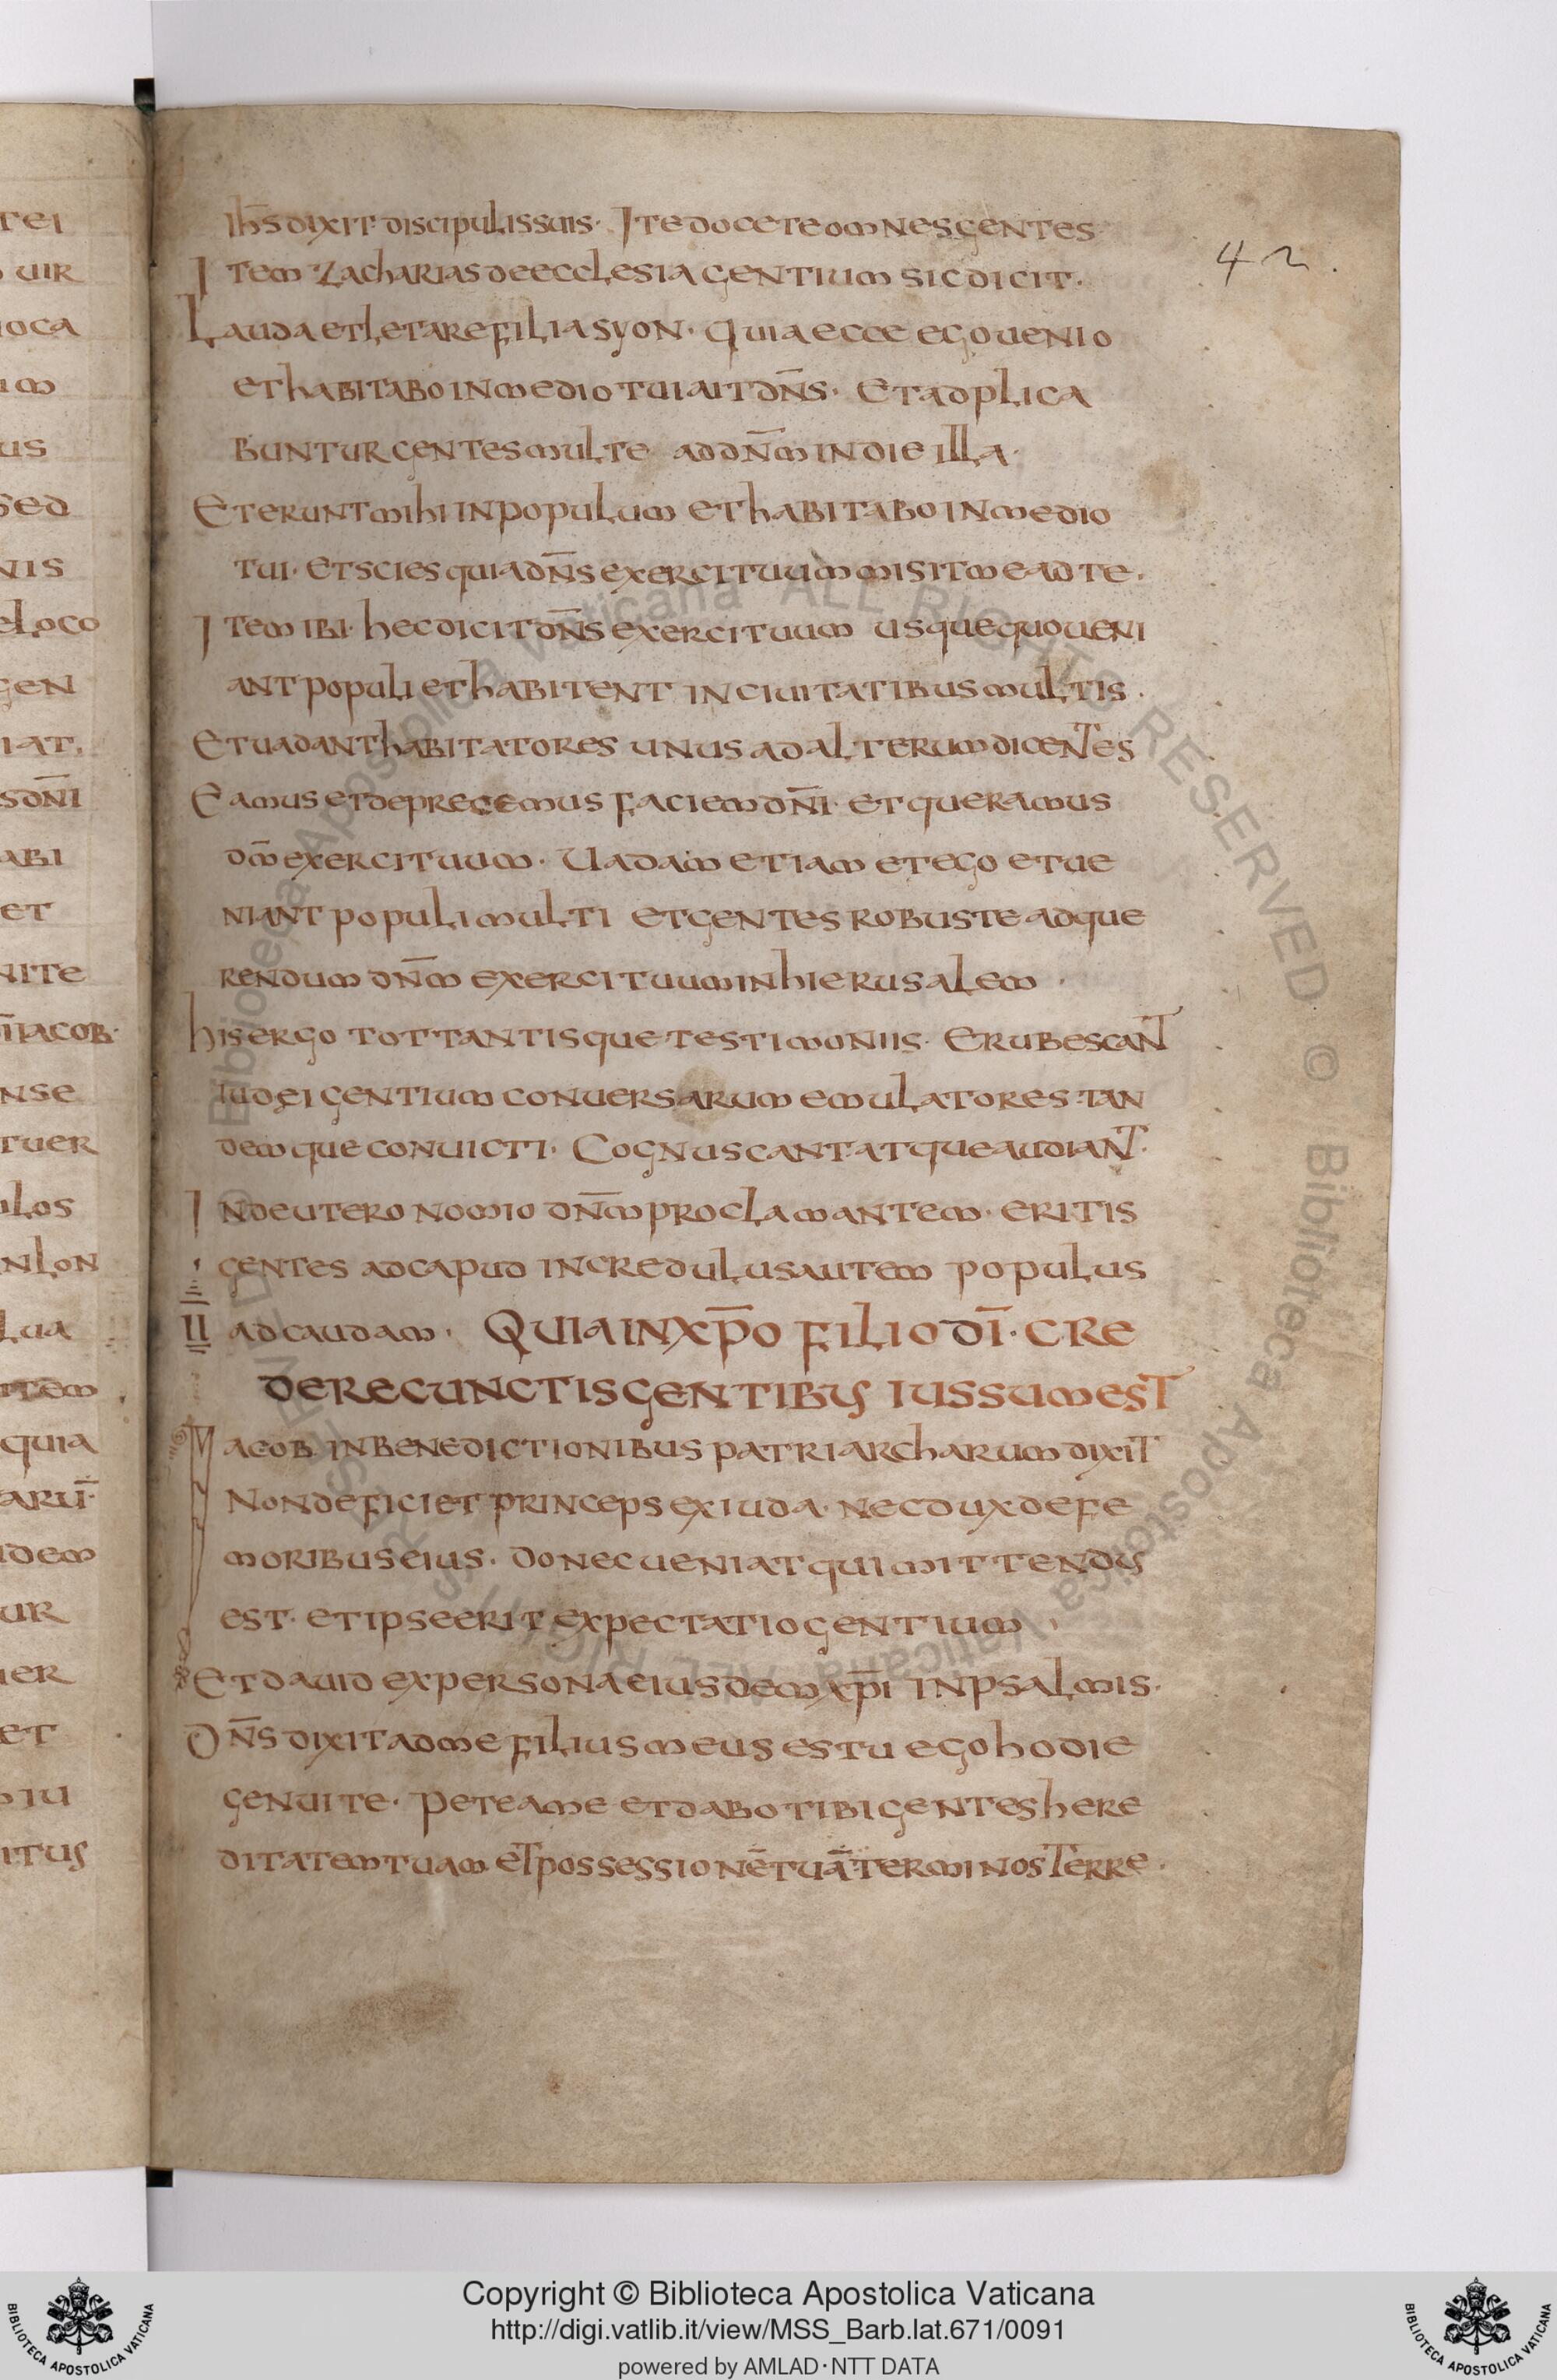 tei
uir
ioca
im
us
sed
nis
eloco
gen
iat.
s dn̄i
abi
et
nite
n̄iacob·
nse
tuer
ilos
nlon
lua
item
quia
arū·
idem
ur
uer
et
iu
itus
42.
ih̄s dixit discipulis suis· Ite docete omnes gentes
Item zacharias de ecclesia gentium sic dicit·
Lauda et letare filia syon· quia ecce ego uenio
et habitabo in medio tui ait dn̄s· Et adplica
buntur gentes multe ad dn̄m in die illa·
Et erunt mihi in populum et habitabo in medio
tui· et scies quia dn̄s exercituum misit me ad te·
Item ibi· hec dicit dn̄s exercituum usquequo ueni
ant populi et habitent in ciuitatibus multis·
Et uadant habitatores unus ad alterum dicentes
Eamus et deprecemus faciem dn̄i· et queramus
dm̄ exercituum· Uadam etiam et ego et ue
niant populi multi et gentes robuste ad que
rendum dn̄m exercituum in hierusalem·
his ergo tot tantisque testimoniis· Erubescant
iudei gentium conuersarum emulatores tan
demque conuicti· Cognuscant atque audiant·
In deuteronomio dn̄m proclamantem· eritis
gentes ad capud incredulus autem populus
II ad caudam· Quia in xp̄o filio dī· cre
dere cunctis gentibus iussum est
Iacob in benedictionibus patriarcharum dixit
Non deficiet princeps ex iuda· nec dux de fe
moribus eius· donec ueniat qui mittendus
est· et ipse erit expectatio gentium·
Et dauid ex persona eiusdem xp̄i in psalmis·
Dn̄s dixit ad me filius meus es tu ego hodie
genui te· Pete a me et dabo tibi gentes here
ditatem tuam et possessionē tuā terminos terre·
Copyright © Biblioteca Apostolica Vaticana
http://digi.vatlib.it/view/MSS_Barb.lat.671/0091
powered by AMLAD·NTT DATA
BIBLIOTECA APOSTOLICA VATICANA
BIBLIOTECA APOSTOLICA VATICANA